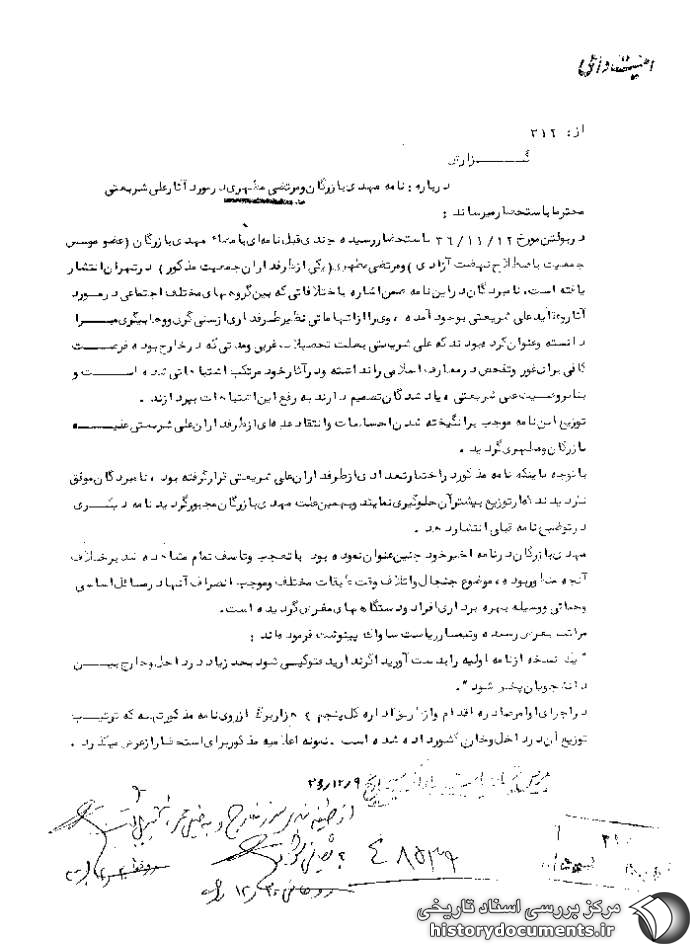 از: ۳۱۲
گزارش
درباره: نامه مهدی بازرگان و مرتضی مطهری در مورد آثار علی شریعتی
محترما باستحضار میرساند:
در بولتن مورخ ۳۶/۱۱/۱۲ باستحضار رسیده چندی قبل نامه‌ای بامضاء مهدی بازرگان (عضو موسس
جمعیت باصطلاح نهضت آزادی) و مرتضی مطهری (یکی از طرفداران جمعیت مذکور) در تهران انتشار
یافته است. نامبردگان در این نامه ضمن اشاره باختلافاتی که بین گروههای مختلف اجتماعی در مورد
آثار و عقاید علی شریعتی بوجود آمده، وی را از اتهاماتی نظیر طرفداری از سنی گری و وهابیگری مبرا
دانسته و عنوان کرده بودند که علی شریعتی بعلت تحصیلات غربی و مدتی که در خارج بوده فرصت
کافی برای غور و تفحص در معارف اسلامی را نداشته و در آثار خود مرتکب اشتباهاتی شده است و
بنابر وصیت علی شریعتی، یاد شدگان تصمیم دارند به رفع این اشتباهات بپردازند.
توزیع این نامه موجب برانگیخته شدن احساسات و انتقاد عده‌ای از طرفداران علی شریعتی علیه
بازرگان و مطهری گردید.
با توجه باینکه نامه مذکور در اختیار تعدادی از طرفداران علی شریعتی قرار گرفته بود، نامبردگان موفق
نگردیدند از توزیع بیشتر آن جلوگیری نمایند و بهمین علت مهدی بازرگان مجبور گردید نامه دیگری
در توضیح نامه قبلی انتشار دهد.
مهدی بازرگان در نامه اخیر خود چنین عنوان نموده بود با تعجب و تاسف تمام مشاهده شد بر خلاف
آنچه منظور بوده، موضوع جنجال و اتلاف وقت طبقات مختلف و موجب انصراف آنها در مسائل اساسی
و حیاتی و وسیله بهره برداری افراد و دستگاههای مغرض گردیده است.
مراتب بعرض رسیده و تیمسار ریاست ساواک پینوشت فرموده‌اند:
"یک نسخه از نامه اولیه را بدست آورید اگر ندارید فتوکپی شود بحد زیاد در داخل و خارج بین
دانشجویان پخش شود".
در اجرای اوامر صادره اقدام و از طریق اداره کل پنجم ۲ هزار برگ از روی نامه مذکور تهیه که ترتیب
توزیع آن در داخل و خارج کشور داده شده است. نمونه اعلامیه مذکور برای استحضار از عرض میگذرد.
۳۶/۱۲/۹
مرکز بررسی اسناد تاریخی
historydocuments.ir